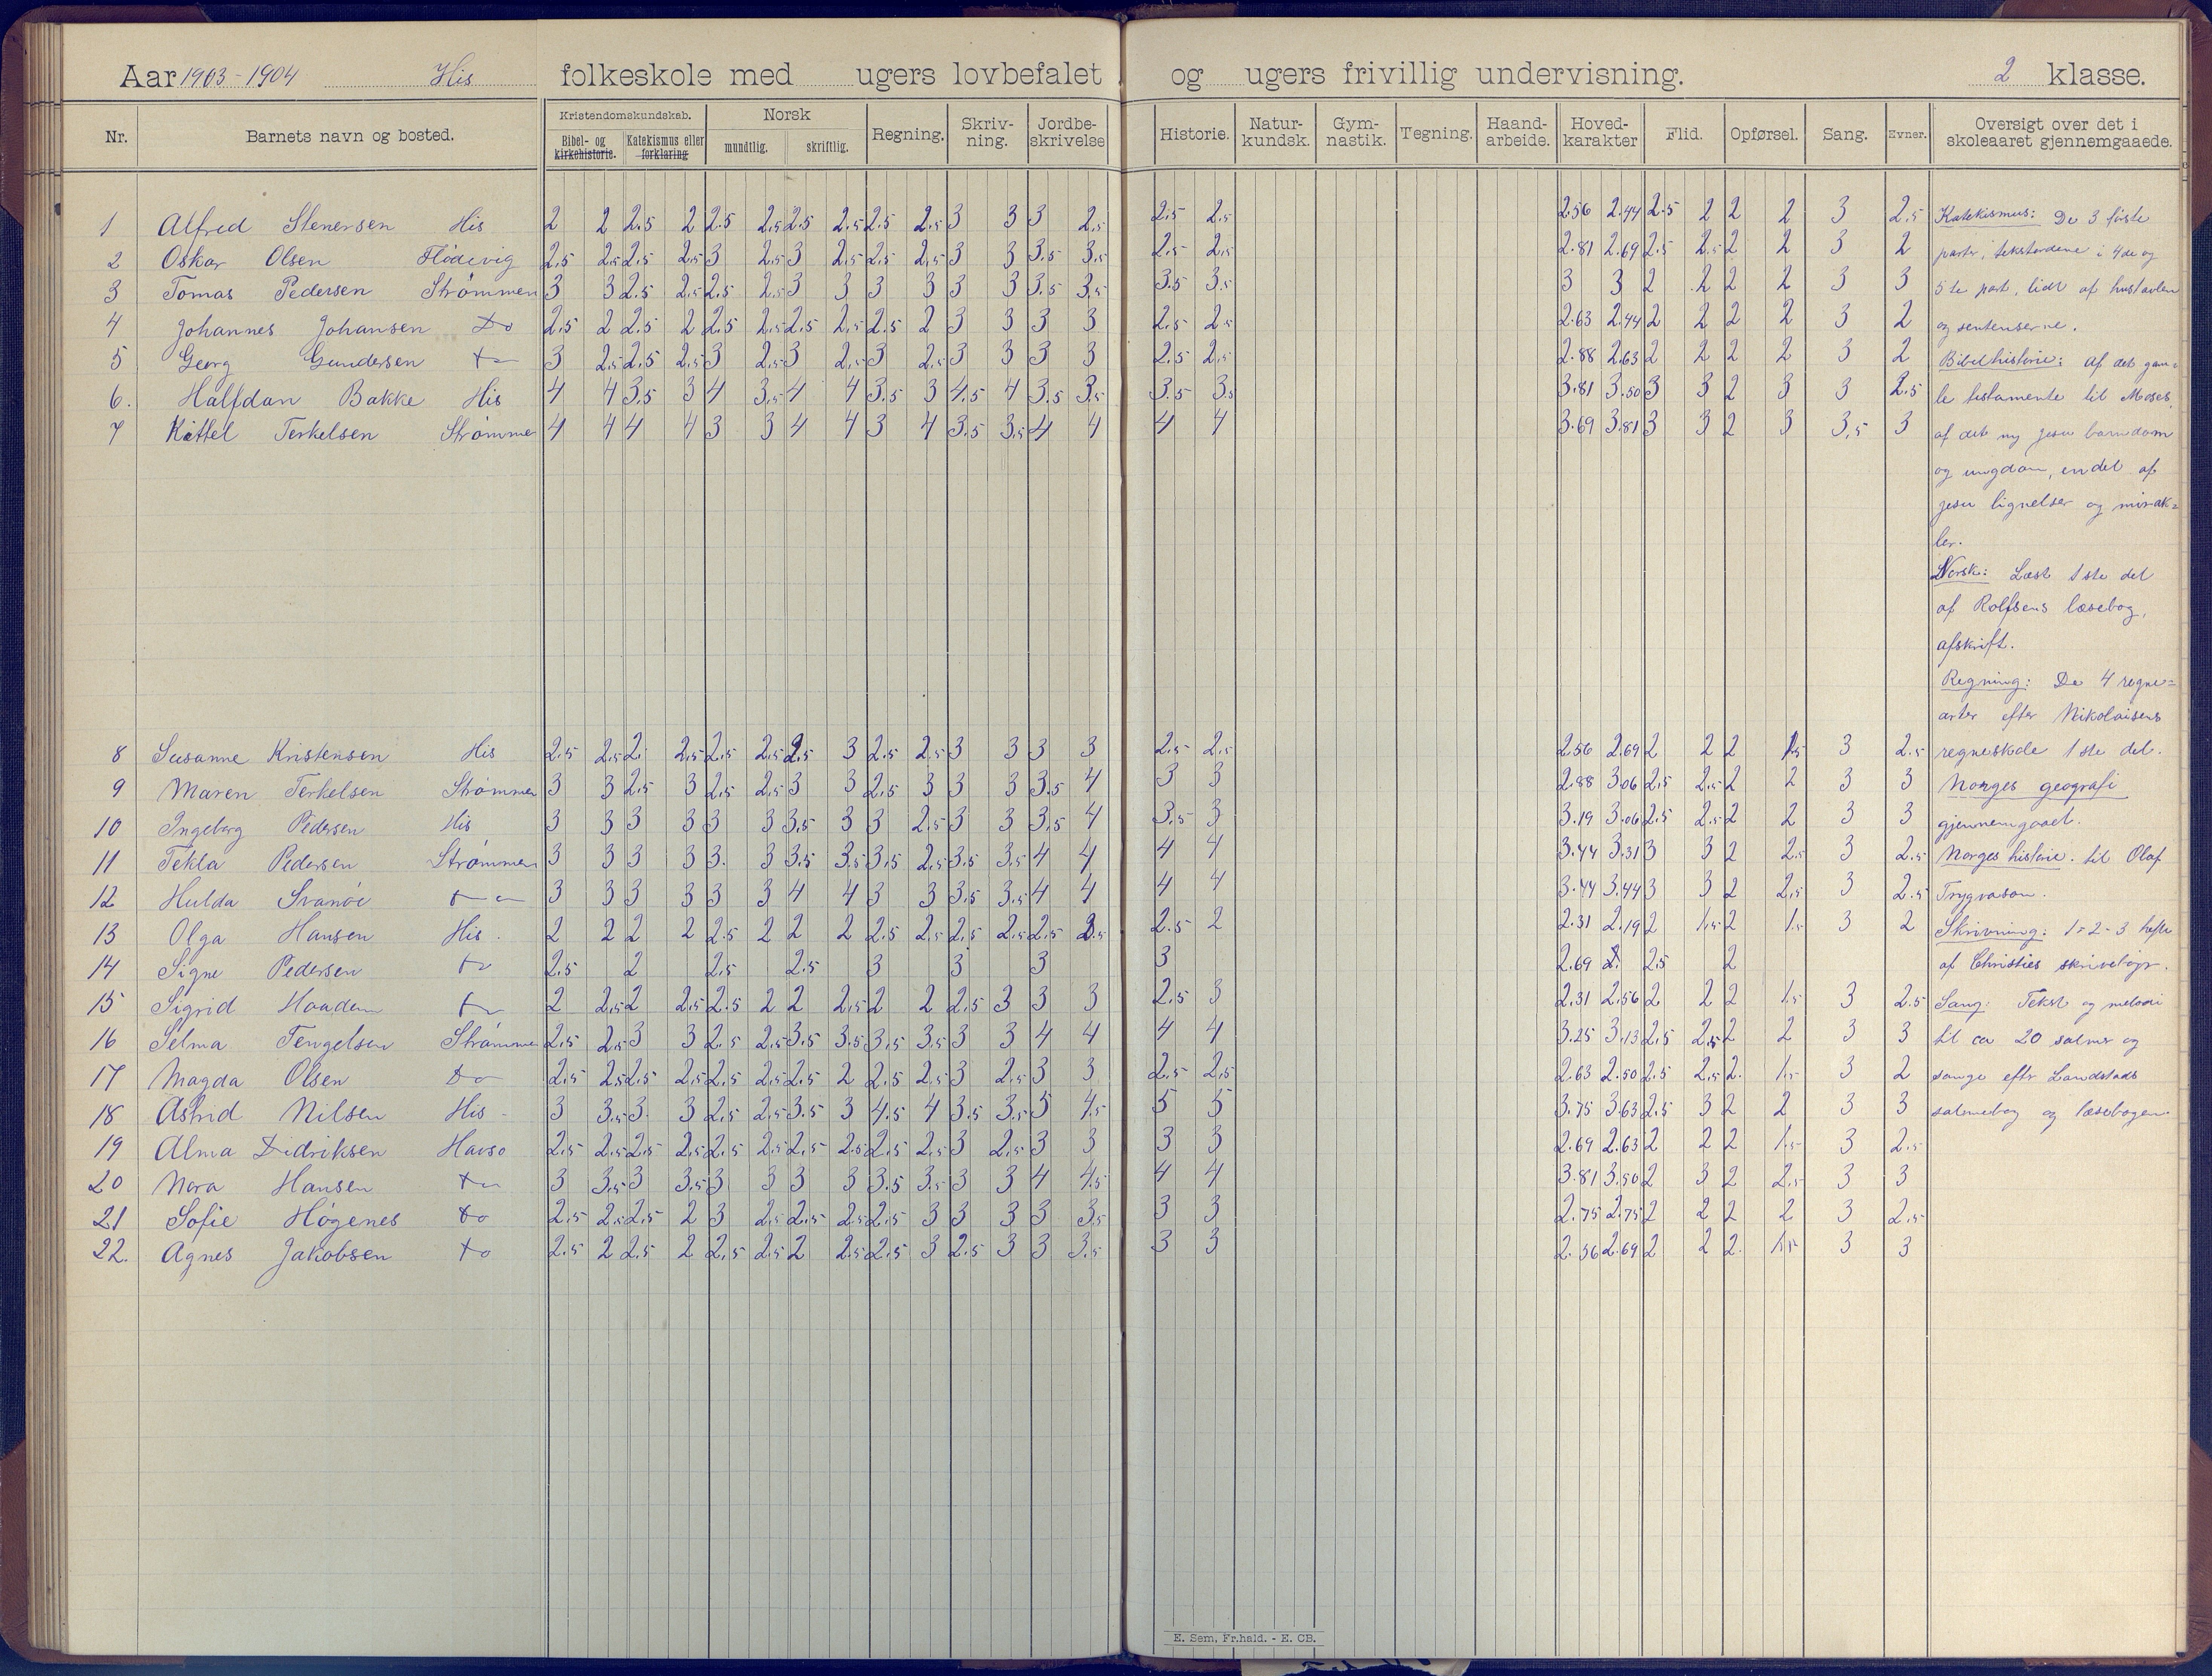 Aar 1903-1904 His folkeskole med ugers lovbefalet og ugers frivillig undervisning. 2 klasse.
Nr. Barnets navn og bosted. Kristendomskundskab. Bibel- og kirkehistorie. Katekismus eller forklaring Norsk mundtlig. skriftlig. Regning. Skriv-ning. Jordbe-skrivelse Historie. Natur-kundsk. Gym-nastik. Tegning. Haand-arbeide. Hoved-karakter Flid. Opførsel. Sang. Evner. Oversigt over det i skoleaaret gjennemgaaede.
1 Alfred Stenersen His 2 2 2.5 2 2.5 2.5 2.5 2.5 2.5 2.5 3 3 3 2.5 2.5 2.5 2.56 2.44 2.5 2 2 2 3 2.5
2 Oskar Olsen Flödevig 2.5 2.5 2.5 2.5 3 2.5 3 2.5 2.5 2.5 3 3 3.5 3.5 2.5 2.5 2.81 2.69 2.5 2.5 2 2 3 2
3 Tomas Pedersen Strømmen 3 3 2.5 2.5 2.5 2.5 3 3 3 3 3 3 3.5 3.5 3.5 3.5 3 3 2 2 2 2 3 3
4 Johannes Johansen Do 2.5 2 2.5 2 2.5 2.5 2.5 2.5 2.5 2 3 3 3 3 2.5 2.5 2.63 2.44 2 2 2 2 3 2
5 Georg Gundersen 3 2.5 2.5 2.5 3 2.5 3 2.5 3 2.5 3 3 3 3 2.5 2.5 2.88 2.63 2 2 2 2 3 2
6. Halfdan Bakke His 4 4 3.5 3 4 3.5 4 4 3.5 3 4.5 4 3.5 3.5 3.5 3.5 3.81 3.50 3 3 2 3 3 2.5
7 Kittel Terkelsen Strømmen 4 4 4 4 3 3 4 4 3 4 3.5 3.5 4 4 4 4 3.69 3.81 3 3 2 3 3.5 3
8 Susanne Kristensen His 2.5 2.5 2. 2.5 2.5 2.5 2.5 3 2.5 2.5 3 3 3 3 2.5 2.5 2.56 2.69 2 2 2 1.5 3 2.5
9 Maren Terkelsen Strømmen 3 3 2.5 3 2.5 2.5 3 3 2.5 3 3 3 3.5 4 3 3 2.88 3.06 2.5 2.5 2 2 3 3
10 Ingeborg Pedersen His 3 3 3 3 3 3 3.5 3 3 2.5 3 3 3.5 4 3.5 3 3.19 3.06 2.5 2.5 2 2 3 3
11 Tekla Pedersen Strømmen 3 3 3 3 3. 3 3.5 3.5 3.5 2.5 3.5 3.5 4 4 4 4 3.44 3.31 3 3 2 2.5 3 2.5
12 Hulda Svanöe 3 3 3 3 3 3 4 4 3 3 3.5 3.5 4 4 4 4 3.44 3.44 3 3 2 2.5 3 2.5
13 Olga Hansen His. 2 2 2 2 2.5 2 2 2 2.5 2.5 2.5 2.5 2.5 2.5 2.5 2 2.31 2.19 2 1.5 2 1.5 3 2
14 Signe Pedersen 2.5 2 2.5 2.5 3 3 3 3 2.69 2.5 2
15 Sigrid Haadem 2 2.5 2 2.5 2.5 2 2 2.5 2 2 2.5 3 3 3 2.5 3 2.31 2.56 2 2 2 1.5 3 2.5
16 Selma Tengelsen Strømmen 2.5 2.5 3 3 2.5 2.5 3.5 3.5 3.5 3.5 3 3 4 4 4 4 3.25 3.13 2.5 2.5 2 2 3 3
17 Magda Olsen Do 2.5 2.5 2.5 2.5 2.5 2.5 2.5 2 2.5 2.5 3 2.5 3 3 2.5 2.5 2.63 2.50 2.5 2.5 2. 1.5 3 2
18 Astrid Nilsen His 3 3.5 3. 3 2.5 2.5 3.5 3 4.5 4 3.5 3.5 5 4.5 5 5 3.75 3.63 2.5 3 2 2 3 3
19 Alma Didriksen Havsø 2.5 2.5 2.5 2.5 2.5 2.5 2.5 2.5 2.5 2.5 3 2.5 3 3 3 3 2.69 2.63 2 2 2 1.5 3 2.5
20 Nora Hansen 3 3.5 3 3.5 3 3 3 3 3.5 3.5 3 3 4 4.5 4 4 3.81 3.50 2 3 2 2.5 3 3
21 Sofie Høgenes do 2.5 2.5 2.5 2 3 2.5 2.5 2.5 2.5 3 3 3 3 3.5 3 3 2.75 2.75 2 2 2 2 3 2.5
22. Agnes Jakobsen do 2.5 2 2.5 2 2.5 2.5 2 2.5 2.5 3 2.5 3 3 3.5 3 3 2.56 2.69 2 2 2. 1.5 3 3
Katekismus: De 3 første
parter, tekstordene i 4de og
5te part, lidt af hustavlen
og sentenserne.
Bibelhistorie: Af det gam=
le testamente til Moses,
af det ny Jesu barndom
og ungdom, en del af
Jesu lignelser og mirak=
ler.
Norsk: Læst 1ste del
af Rolfsens læsebog,
afskrift.
Regning: De 4 regne=
arter efter Nikolaisens
regneskole 1ste del.
Norges geografi
gjennemgaaet.
Norges historie til Olaf
Trygvason.
Skrivning: 1-2-3 hefte
af Christies skrivebøger.
Sang: Tekst og melodi
til ca 20 salmer og
sange efter Landstads
salmebog og læsebogen.
E. Sem, Fr.hald. - E. CB.